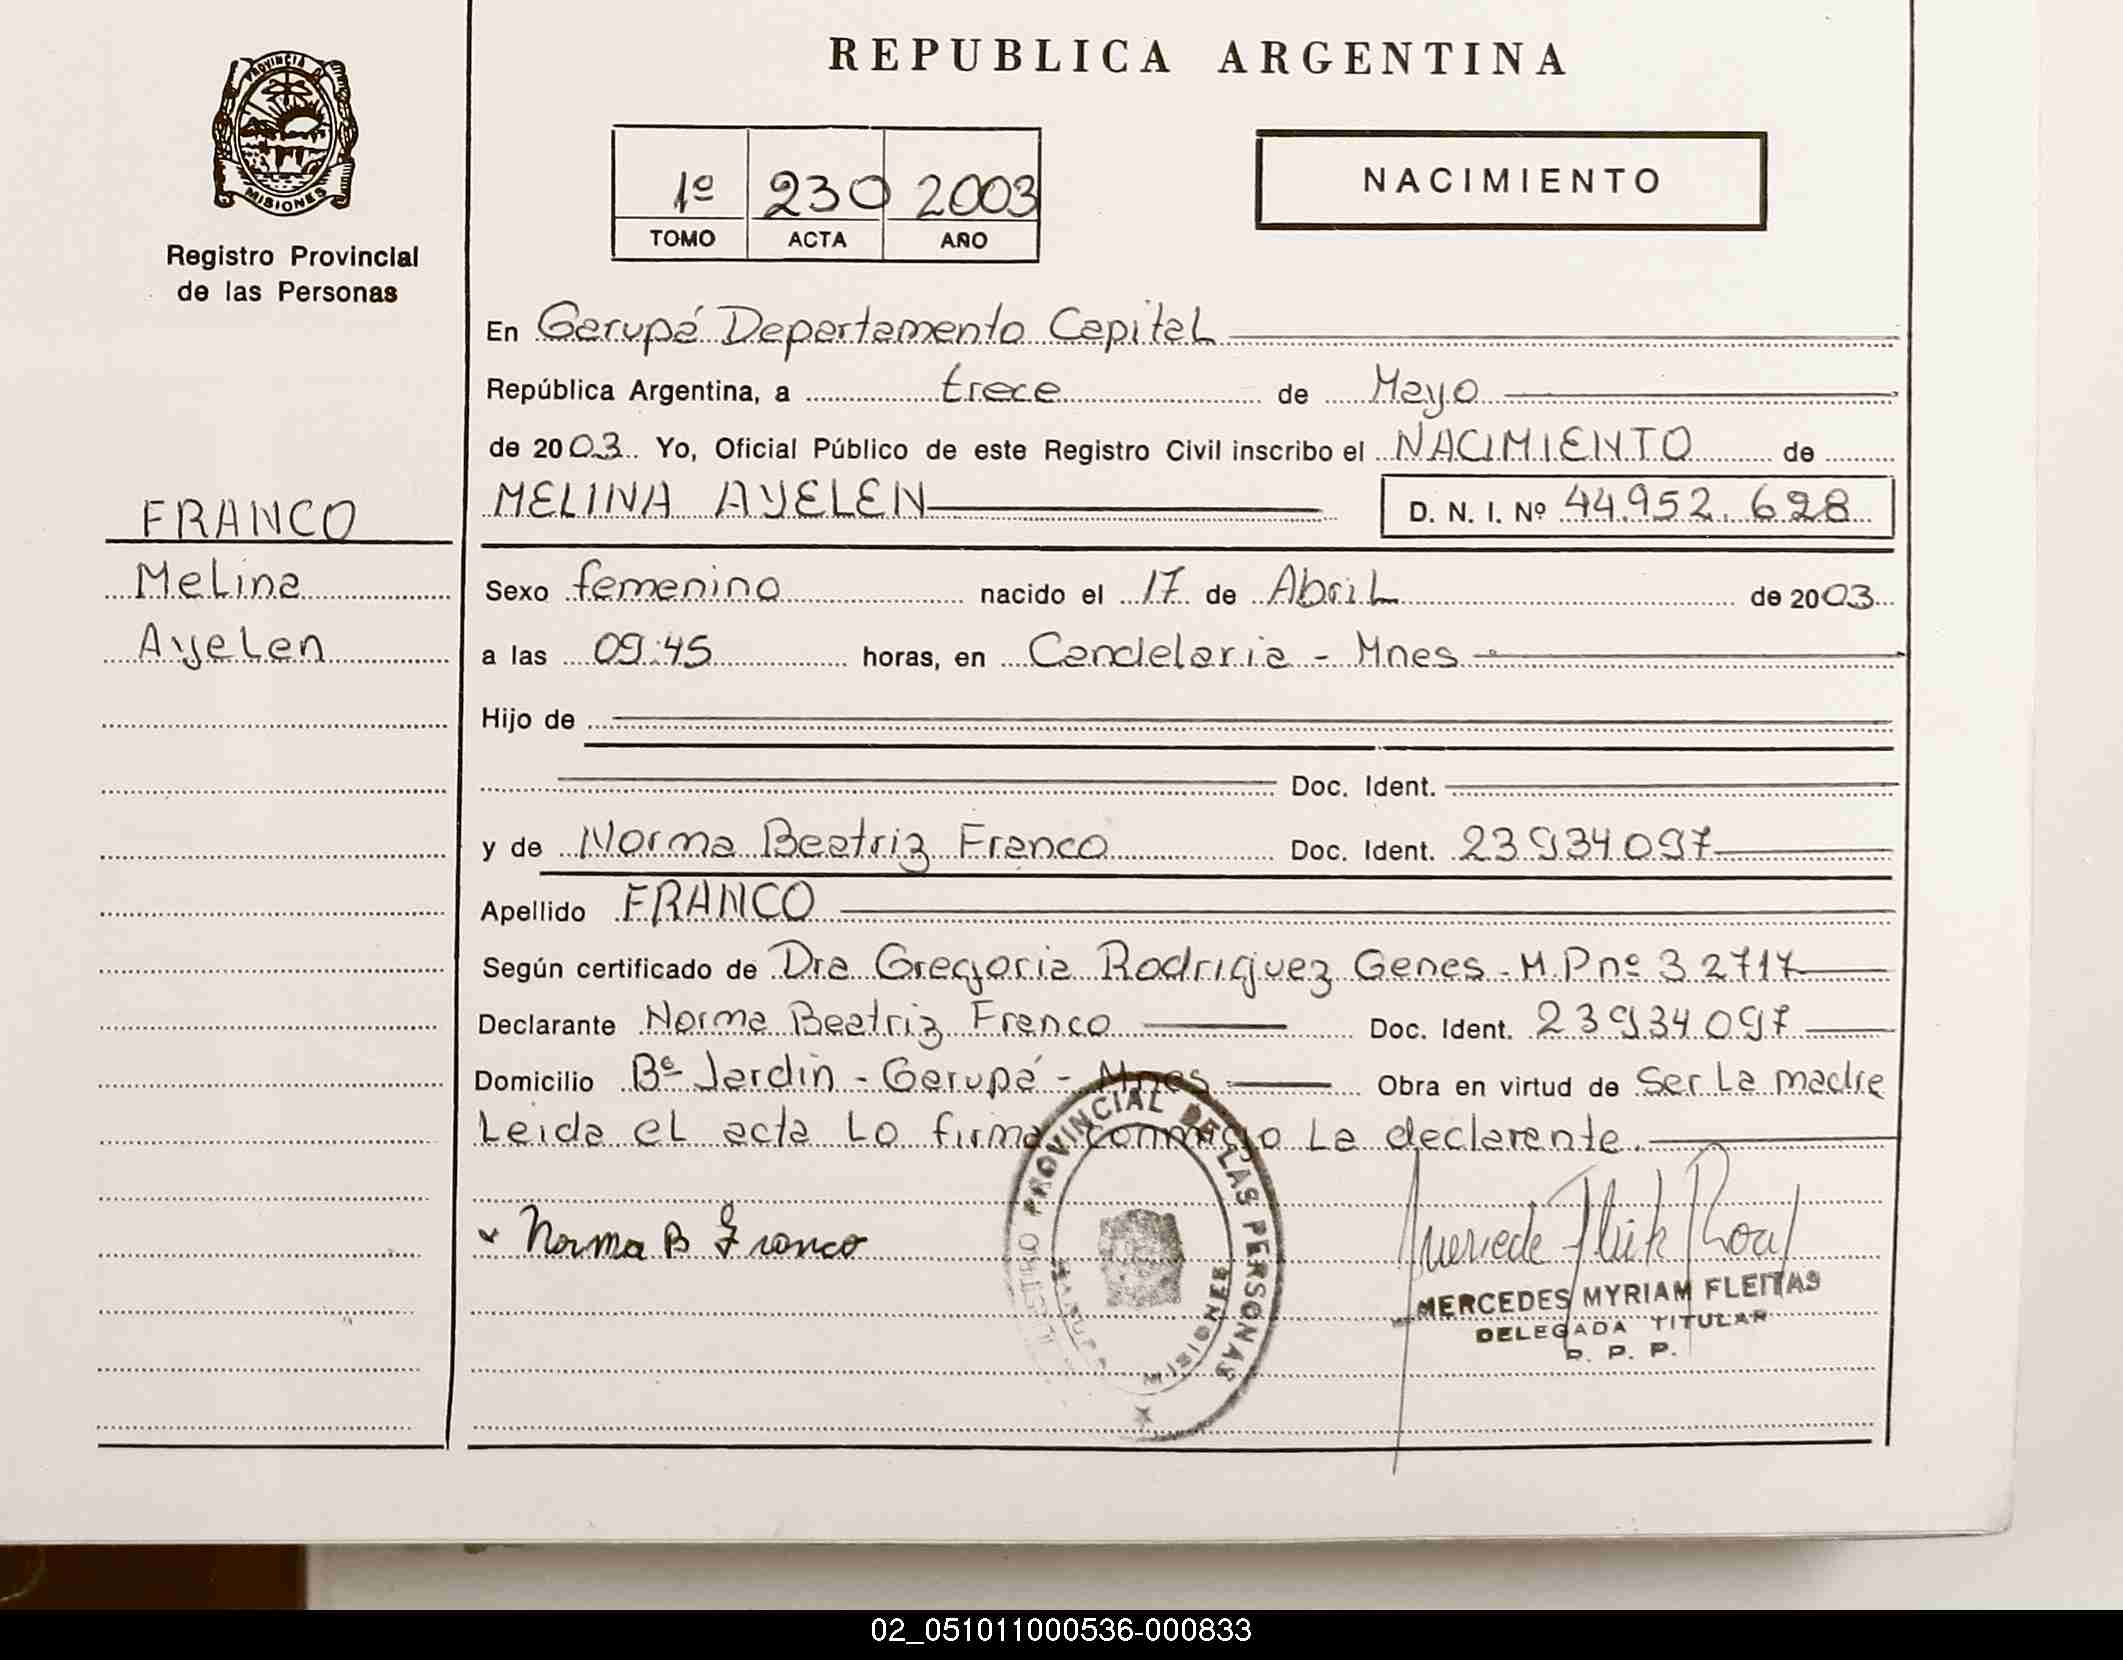 PROVINCIA D
MISIONES
Registro Provincial
de las Personas
FRANCO
Melina
Ayelen
REPUBLICA ARGENTINA
1º 230 2003
TOMO ACTA AÑO
NACIMIENTO
En Garupá Departamento Capital
República Argentina, a trece de Mayo
de 2003 Yo, Oficial Público de este Registro Civil inscribo el NACIMIENTO de
MELINA AYELEN D. N. I. Nº 44.952.628
Sexo femenino nacido el 17 de Abril de 2003
a las 09:45 horas, en Candelaria - Mnes
Hijo de
Doc. Ident.
y de Norma Beatriz Franco Doc. Ident. 23934097
Apellido FRANCO
Según certificado de Dra Gregoria Rodriguez Genes - M.P nº 32717
Declarante Norma Beatriz Franco Doc. Ident. 23934097
Domicilio Bº Jardin - Garupá - Mnes Obra en virtud de Ser La madre
Leida el acta Lo firma conmigo La declarante.
Norma B Franco
REGISTRO PROVINCIAL DE LAS PERSONAS
MISIONES
MERCEDES MYRIAM FLEITAS
DELEGADA TITULAR
R. P. P.
02_051011000536-000833